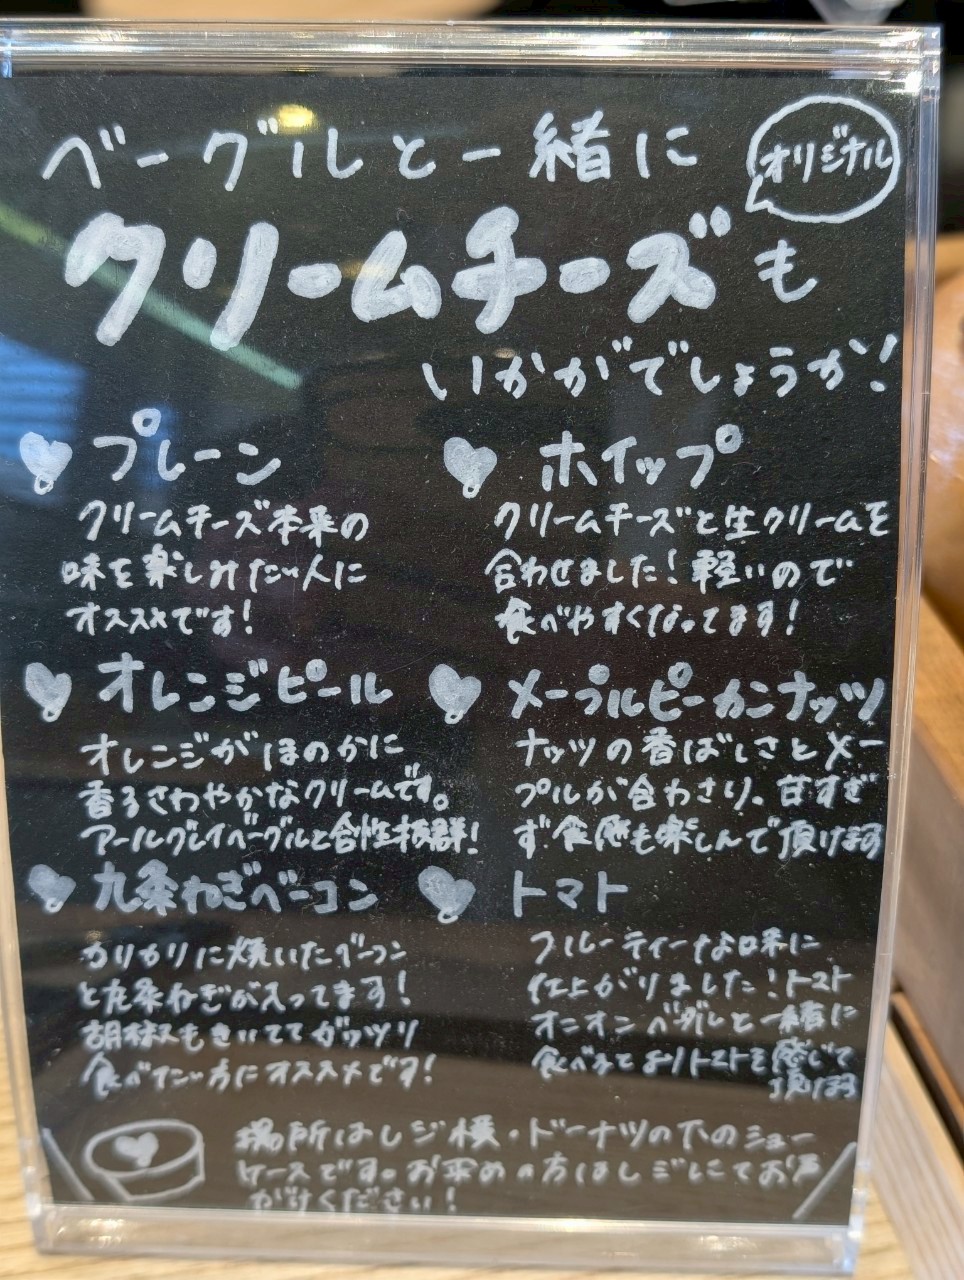 ベーグルと一緒に
オリジナル
クリームチーズも
いかがでしょうか!
プレーン
クリームチーズ本来の
味を楽しみたい人に
オススメです!
ホイップ
クリームチーズと生クリームを
合わせました!軽いので
食べやすくなってます!
オレンジピール
オレンジがほのかに
香るさわやかなクリームです。
アールグレイベーグルと合性抜群!
メープルピーカンナッツ
ナッツの香ばしさとメー
プルが合わさり、甘すぎ
ず食感も楽しんで頂けます
九条ねぎベーコン
カリカリに焼いたベーコン
と九条ねぎが入ってます!
胡椒もきいててガッツリ
食べたい方にオススメです!
トマト
フルーティーな味に
仕上がりました!トマト
オニオンベーグルと一緒に
食べるとよりトマトを感じて
頂けます
場所はレジ横・ドーナツの下のショー
ケースです。お求めの方はレジにてお声
がけください!